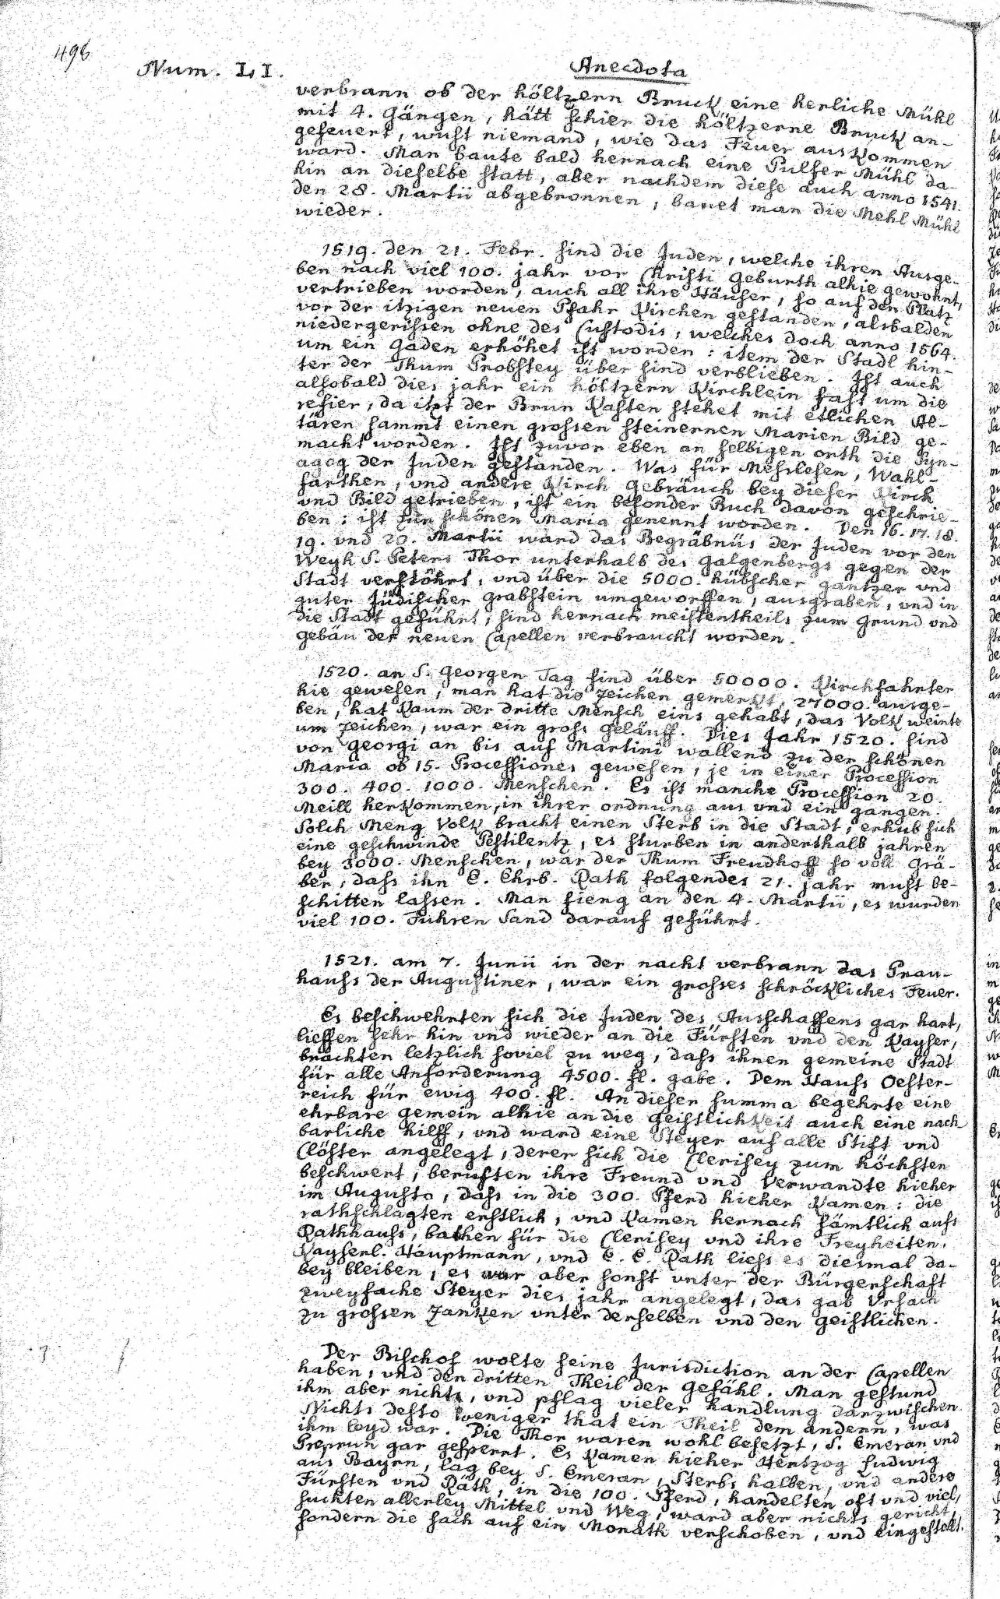 498
Num. LI.
Anecdota
verbrann ob der höltzern Bruck eine herliche Mühl
mit 4. Gängen, hätt schier die höltzerne Bruck an-
gefeuert, wust niemand, wie das Feuer auskommen
ward. Man baute bald hernach eine Pulfer Mühl da-
hin an dieselbe statt, aber nachdem diese auch anno 1541.
den 28. Martii abgebronnen, bauet man die Mehl Mühl
wieder.
1519. den 21. Febr. sind die Juden, welche ihren Ausge-
ben nach viel 100. jahr vor Christi Geburth alhie gewohnt,
vertrieben worden, auch all ihre Häuser, so auf den Platz
vor der itzigen neuen Pfahr Kirchen gestanden, alsbalden
niedergerissen ohne des Custodis, welches doch anno 1564.
um ein Gaden erhöhet ist worden: item der Stadl hin-
ter der Thum Probstey über sind verblieben. Ist auch
alsobald dies jahr ein höltzern Kirchlein fast um die
refier, da itzt der Brun Kasten stehet mit etlichen Al-
tären sammt einen grossen steinernen Marien Bild ge-
macht worden. Ist zuvor eben an selbigen orth die Syn-
agog der Juden gestanden. Was für Mehrlesen, Wahl-
farthen, und andere Kirch Gebräuch bey dieser Kirch
und Bild getrieben, ist ein besonder Buch davon geschrie-
ben; ist zur schönen Maria genennt worden. Den 16. 17. 18.
19. und 20. Martii ward das Begräbnüs der Juden vor den
Weyh S. Peters Thor unterhalb des Galgenbergs gegen der
Stadt verstöhrt, und über die 5000. hübscher gantzer und
guter Jüdischer grabstein umgeworffen, ausgraben, und in
die Stadt geführt, sind hernach meistentheils zum Grund und
gebäu der neuen Capellen verbraucht worden.
1520. an S. Georgen Tag sind über 50000. Kirchfahrter
hie gewesen, man hat die Zeichen gemerkt, 27000. ausge-
ben, hat kaum der dritte Mensch eins gehabt, das Volk weinte
um Zeichen, war ein gross geläuff. Dies Jahr 1520. sind
von Georgi an bis auf Martini wallend zu der schönen
Maria ob 15. Processiones gewesen, je in einer Procession
300. 400. 1000. Menschen. Es ist manche Procession 20.
Meill herkommen, in ihrer ordnung aus und ein gangen.
Solch Meng Volk bracht einen Sterb in die Stadt, erhub sich
eine geschwinde Pestilentz, es sturben in anderthalb jahren
bey 3000. Menschen, war der Thum Freudhoff so voll Grä-
ber, dass ihn E. Ehrb. Rath folgendes 21. jahr must be-
schitten lassen. Man fieng an den 4. Martii, es wurden
viel 100. Fuhren Sand darauf geführt.
1521. am 7. Junii in der nacht verbrann das Prau-
hauss der Augustiner, war ein grosses schröckliches Feuer.
Es beschwehrten sich die Juden des Ausschaffens gar hart,
lieffen sehr hin und wieder an die Fürsten und den Kayser,
brachten letzlich soviel zu weg, dass ihnen gemeine Stadt
für alle Anforderung 4500. fl. gabe. Dem Hauss Oester-
reich für ewig 400. fl. An diesen summa begehrte eine
ehrbare gemein alhie an die Geistlichkeit auch eine nach
barliche hilff, und ward eine Steyer auf alle Stift und
Clöster angelegt, derer sich die Clerisey zum höchsten
beschwert, berufften ihre Freund und Verwandte hieher
im Augusto, dass in die 300. Pferd hieher kamen: die
rathschlagten erstlich, und kamen hernach sämtlich aufs
Rathhauss, bathen für die Clerisey und ihre Freyheiten.
Kayserl. Hauptmann, und E. E. Rath liess es diesmal da-
bey bleiben, es war aber sonst unter der Bürgerschaft
zweyfache Steyer dies jahr angelegt, das gab Ursach
zu grossen Zancken unter derselben und den geistlichen.
Der Bischof wolte seine Jurisdiction an der Capellen
haben, und den dritten Theil der gefähl. Man gestund
ihm aber nichts, und pflag vieler handlung darzwischen.
Nichts desto weniger that ein Theil dem andern, was
ihm leyd war. Die Thor waren wohl besetzt, S. Emeran und
Preprun gar gesperrt. Es kamen hieher Hertzog Ludwig
aus Bayrn, lag bey S. Emeran, Sterbs halben, und andere
Fürsten und Räth, in die 100. Pferd, handelten oft und viel,
suchten allerley Mittel und Weg, ward aber nichts gericht,
sondern die sach auf ein Monath verschoben, und eingestellt.